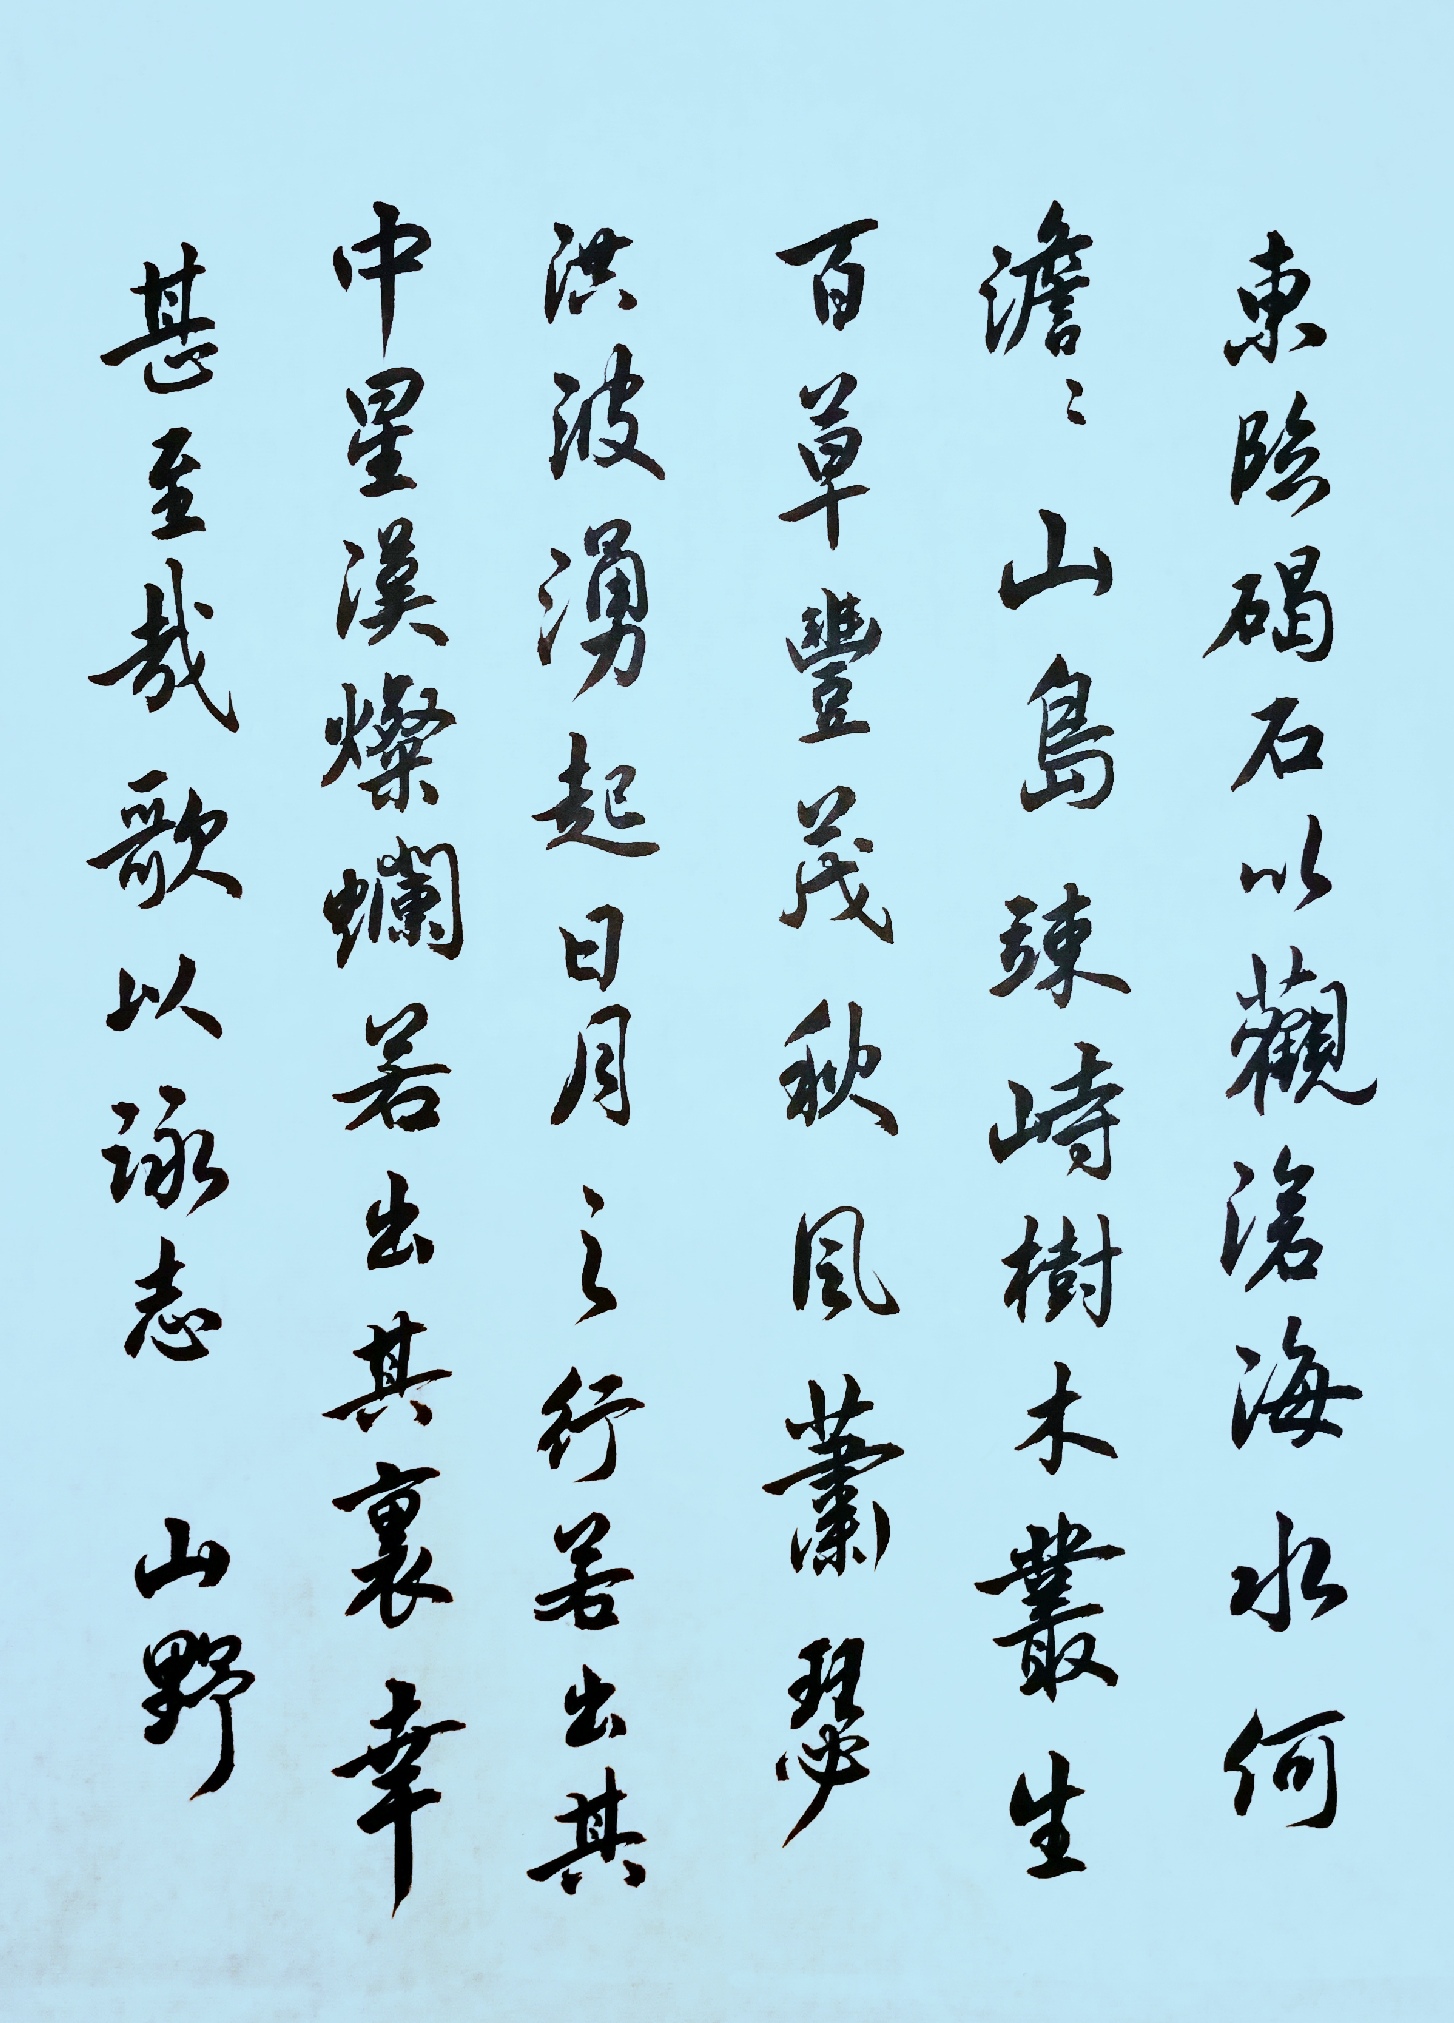 東臨碣石以觀滄海水何
澹〻山島竦峙樹木叢生
百草豐茂秋風蕭瑟
洪波湧起日月之行若出其
中星漢燦爛若出其裏幸
甚至哉歌以詠志 山野